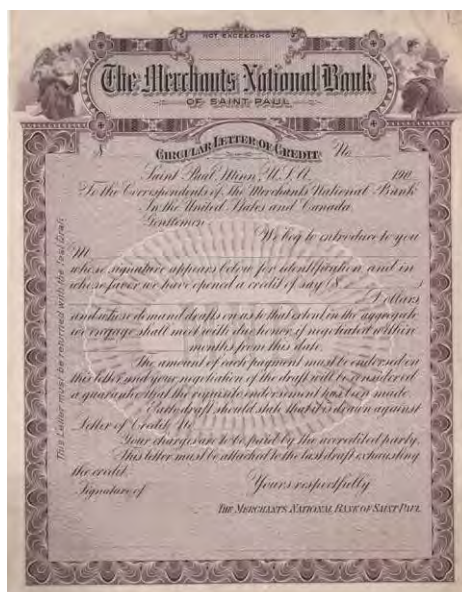 NOT EXCEEDING
The Merchants National Bank
OF SAINT PAUL
$ CIRCULAR LETTER OF CREDIT No.
Saint Paul, Minn., U.S.A. 190
To the Correspondents of The Merchants National Bank
In the United States and Canada
Gentlemen:
We beg to introduce to you
M
whose signature appears below for identification, and in
whose favor we have opened a credit of say ($ )
Dollars
and whose demand drafts on us to that extent in the aggregate
we engage shall meet with due honor if negotiated within
months from this date.
The amount of each payment must be endorsed on
this letter and your negotiation of the draft will be considered
a guarantee that the requisite endorsement has been made.
Each draft should state that it is drawn against
Letter of Credit No.
Your charges are to be paid by the accredited party.
This letter must be attached to the last draft exhausting
the credit.
Signature of Yours respectfully
THE MERCHANTS NATIONAL BANK OF SAINT PAUL
This Letter must be returned with the last Draft